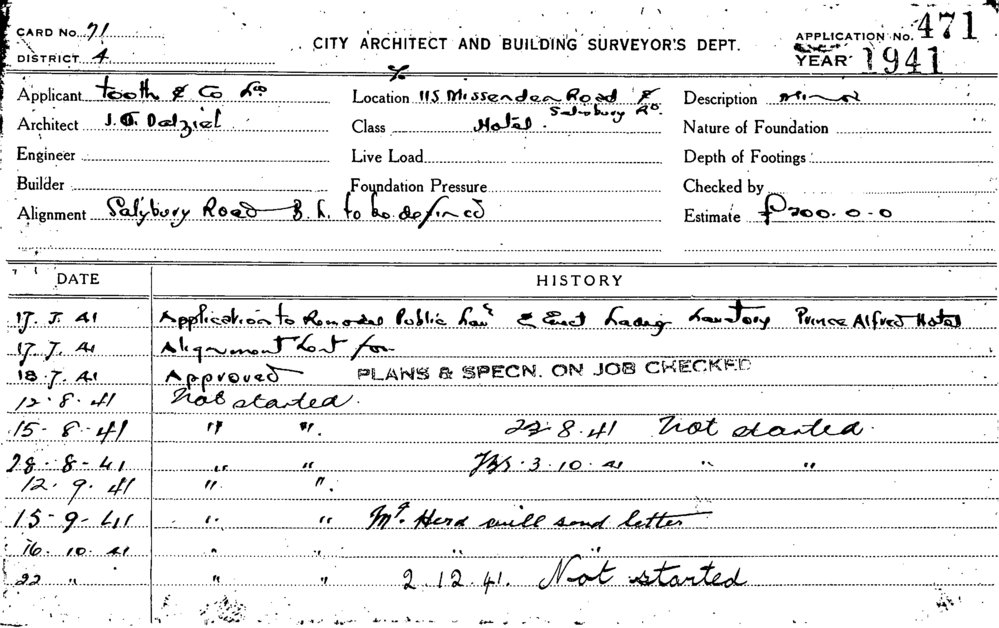 CARD No. 71
DISTRICT 4
CITY ARCHITECT AND BUILDING SURVEYOR'S DEPT.
APPLICATION No. 471
YEAR 1941
Applicant Tooth & Co Ld
Location 115 Missenden Road & Salisbury Rd.
Description Minor
Architect J. G. Dalziel
Class Hotel.
Nature of Foundation
Engineer
Live Load
Depth of Footings
Builder
Foundation Pressure
Checked by
Alignment Salybury Road B.L. to be defined
Estimate £200.0.0
DATE HISTORY
17. 7. 41 Application to Remodel Public Lavy & Erect Ladies Lavatory Prince Alfred Hotel
17. 7. 41 Alignment for
18. 7. 41 Approved PLANS & SPECN. ON JOB CHECKED
12. 8. 41 Not started.
15- 8- 41 " ". 22.8.41 Not started.
28. 8- 41 " " 3.10.41 " "
12. 9. 41 " ".
15-9-41 " " Mr. Herd will send letter
16. 10. 41 " " " "
22 " " " 2.12.41. Not started